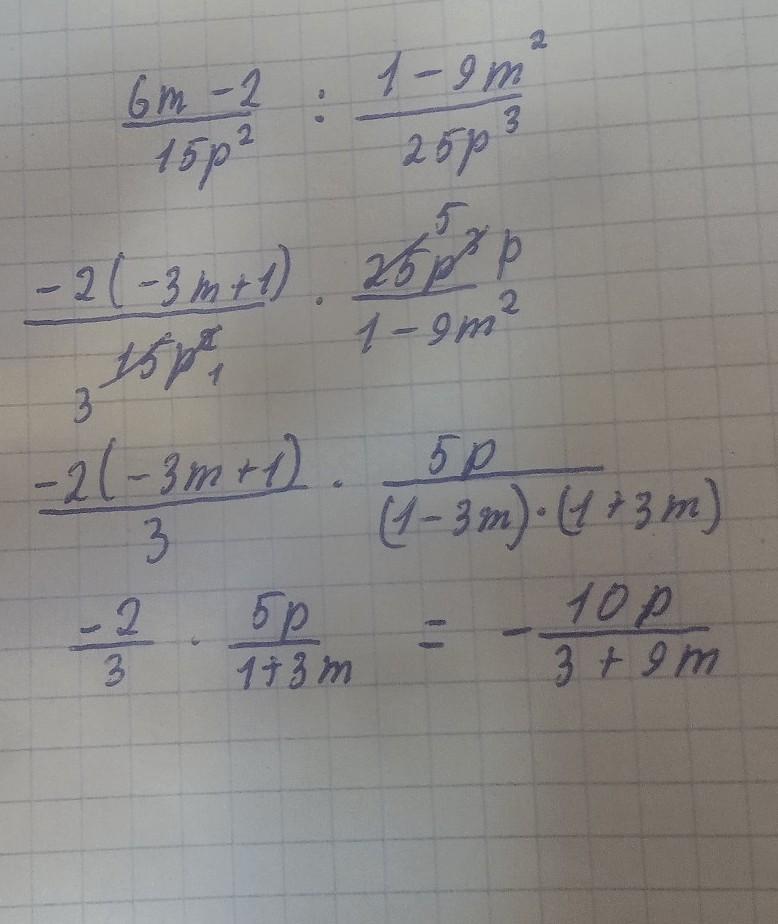 6m - 2 / 15p² : 1 - 9m² / 25p³
-2(-3m+1) / 15p² 3 1 · 25p³ 5 p / 1 - 9m²
-2(-3m+1) / 3 · 5p / (1-3m)·(1+3m)
-2 / 3 · 5p / 1+3m = - 10p / 3 + 9m